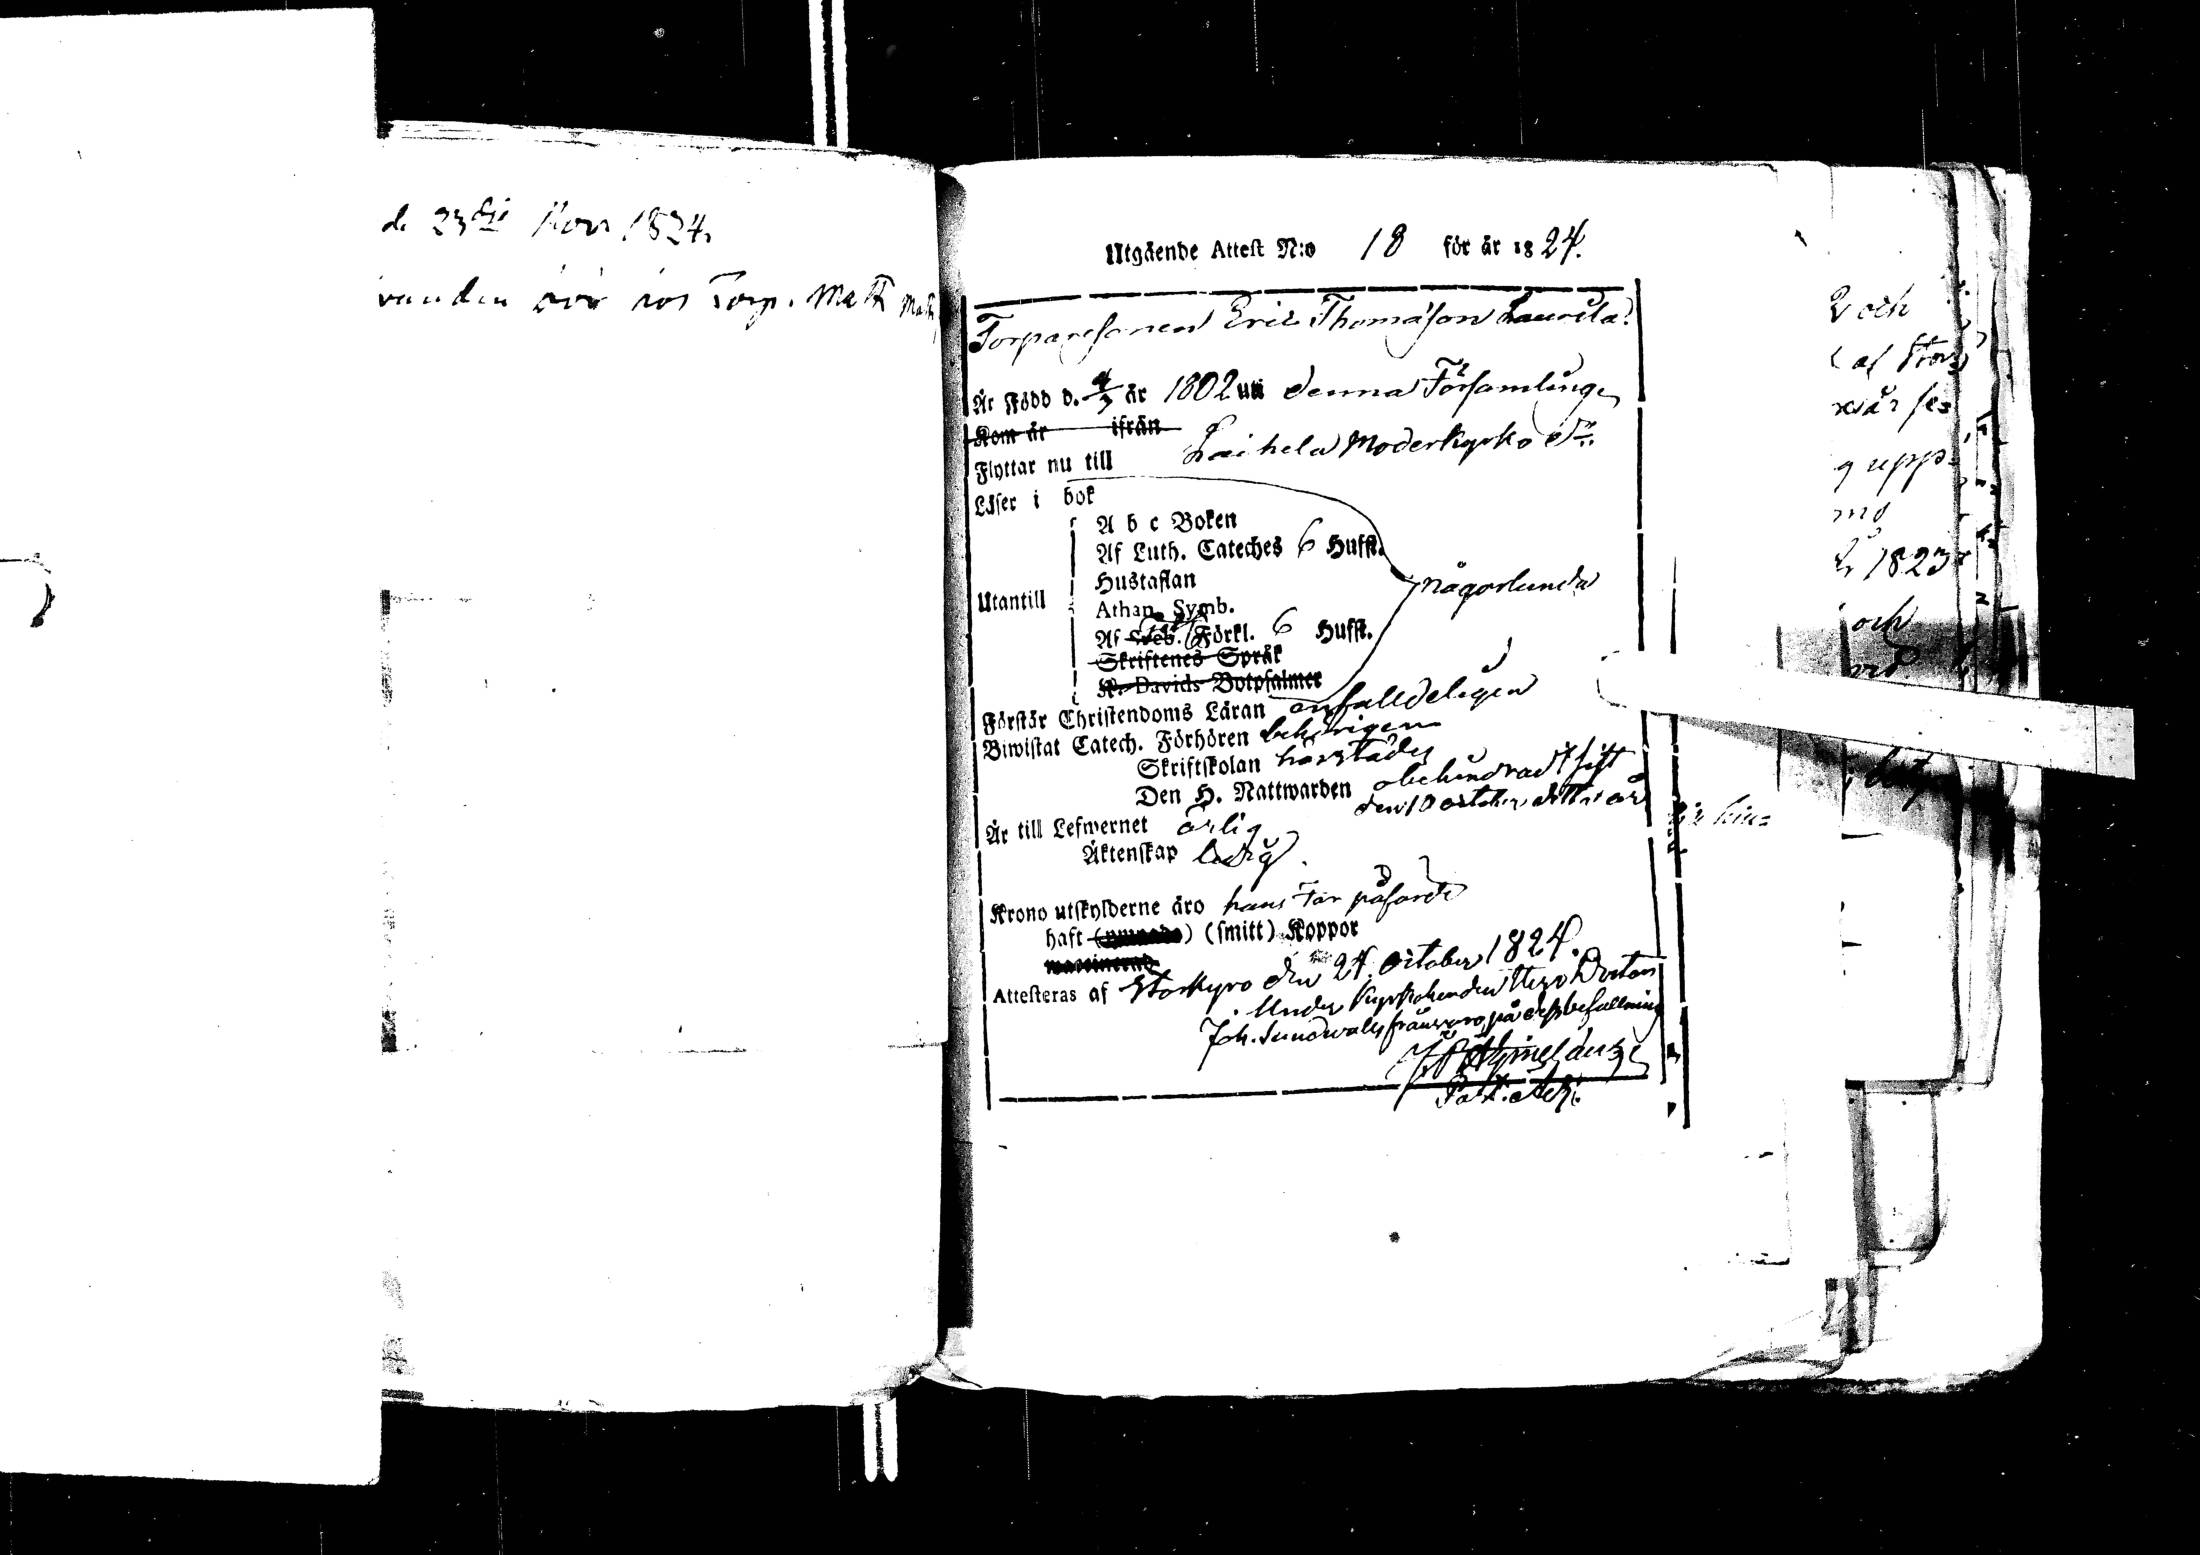 d. 23die Nov 1824.
Torp. Matt Matts
Utgående Attest N:o 18 för år 1824.
Torparesonen Eric Thomasson Laurila.
Är Född d. 4/7 år 1802 uti denna Församling
Kom år ifrån
Flyttar nu till Laihela Moderkyrko
Läser i bok
A b c Boken
Af Luth. Cateches 6 Hufst.
Hustaflan
Utantill
någorlunda
Athan. Symb.
Af Förkl. 6 Hufst.
Skriftenes Språk
K. Davids Botpsalmer
Förstår Christendoms Läran enfalldeligen
Biwistat Catech. Förhören behörigen
Skriftskolan härstädes
Den H. Nattwarden obehindradt sist
den 10 october detta år
Är till Lefwernet ärlig
Äktenskap ledig
Krono utskylderne äro hans Far påförde
haft (smitt) Koppor
Attesteras af Storkyro den 24 October 1824.
Under Kyrkoherden Herr Doctor
Joh. Sundwalls frånvaro, på dess befallning
Past. Adj.
och
af Stor
upp-
1823
och